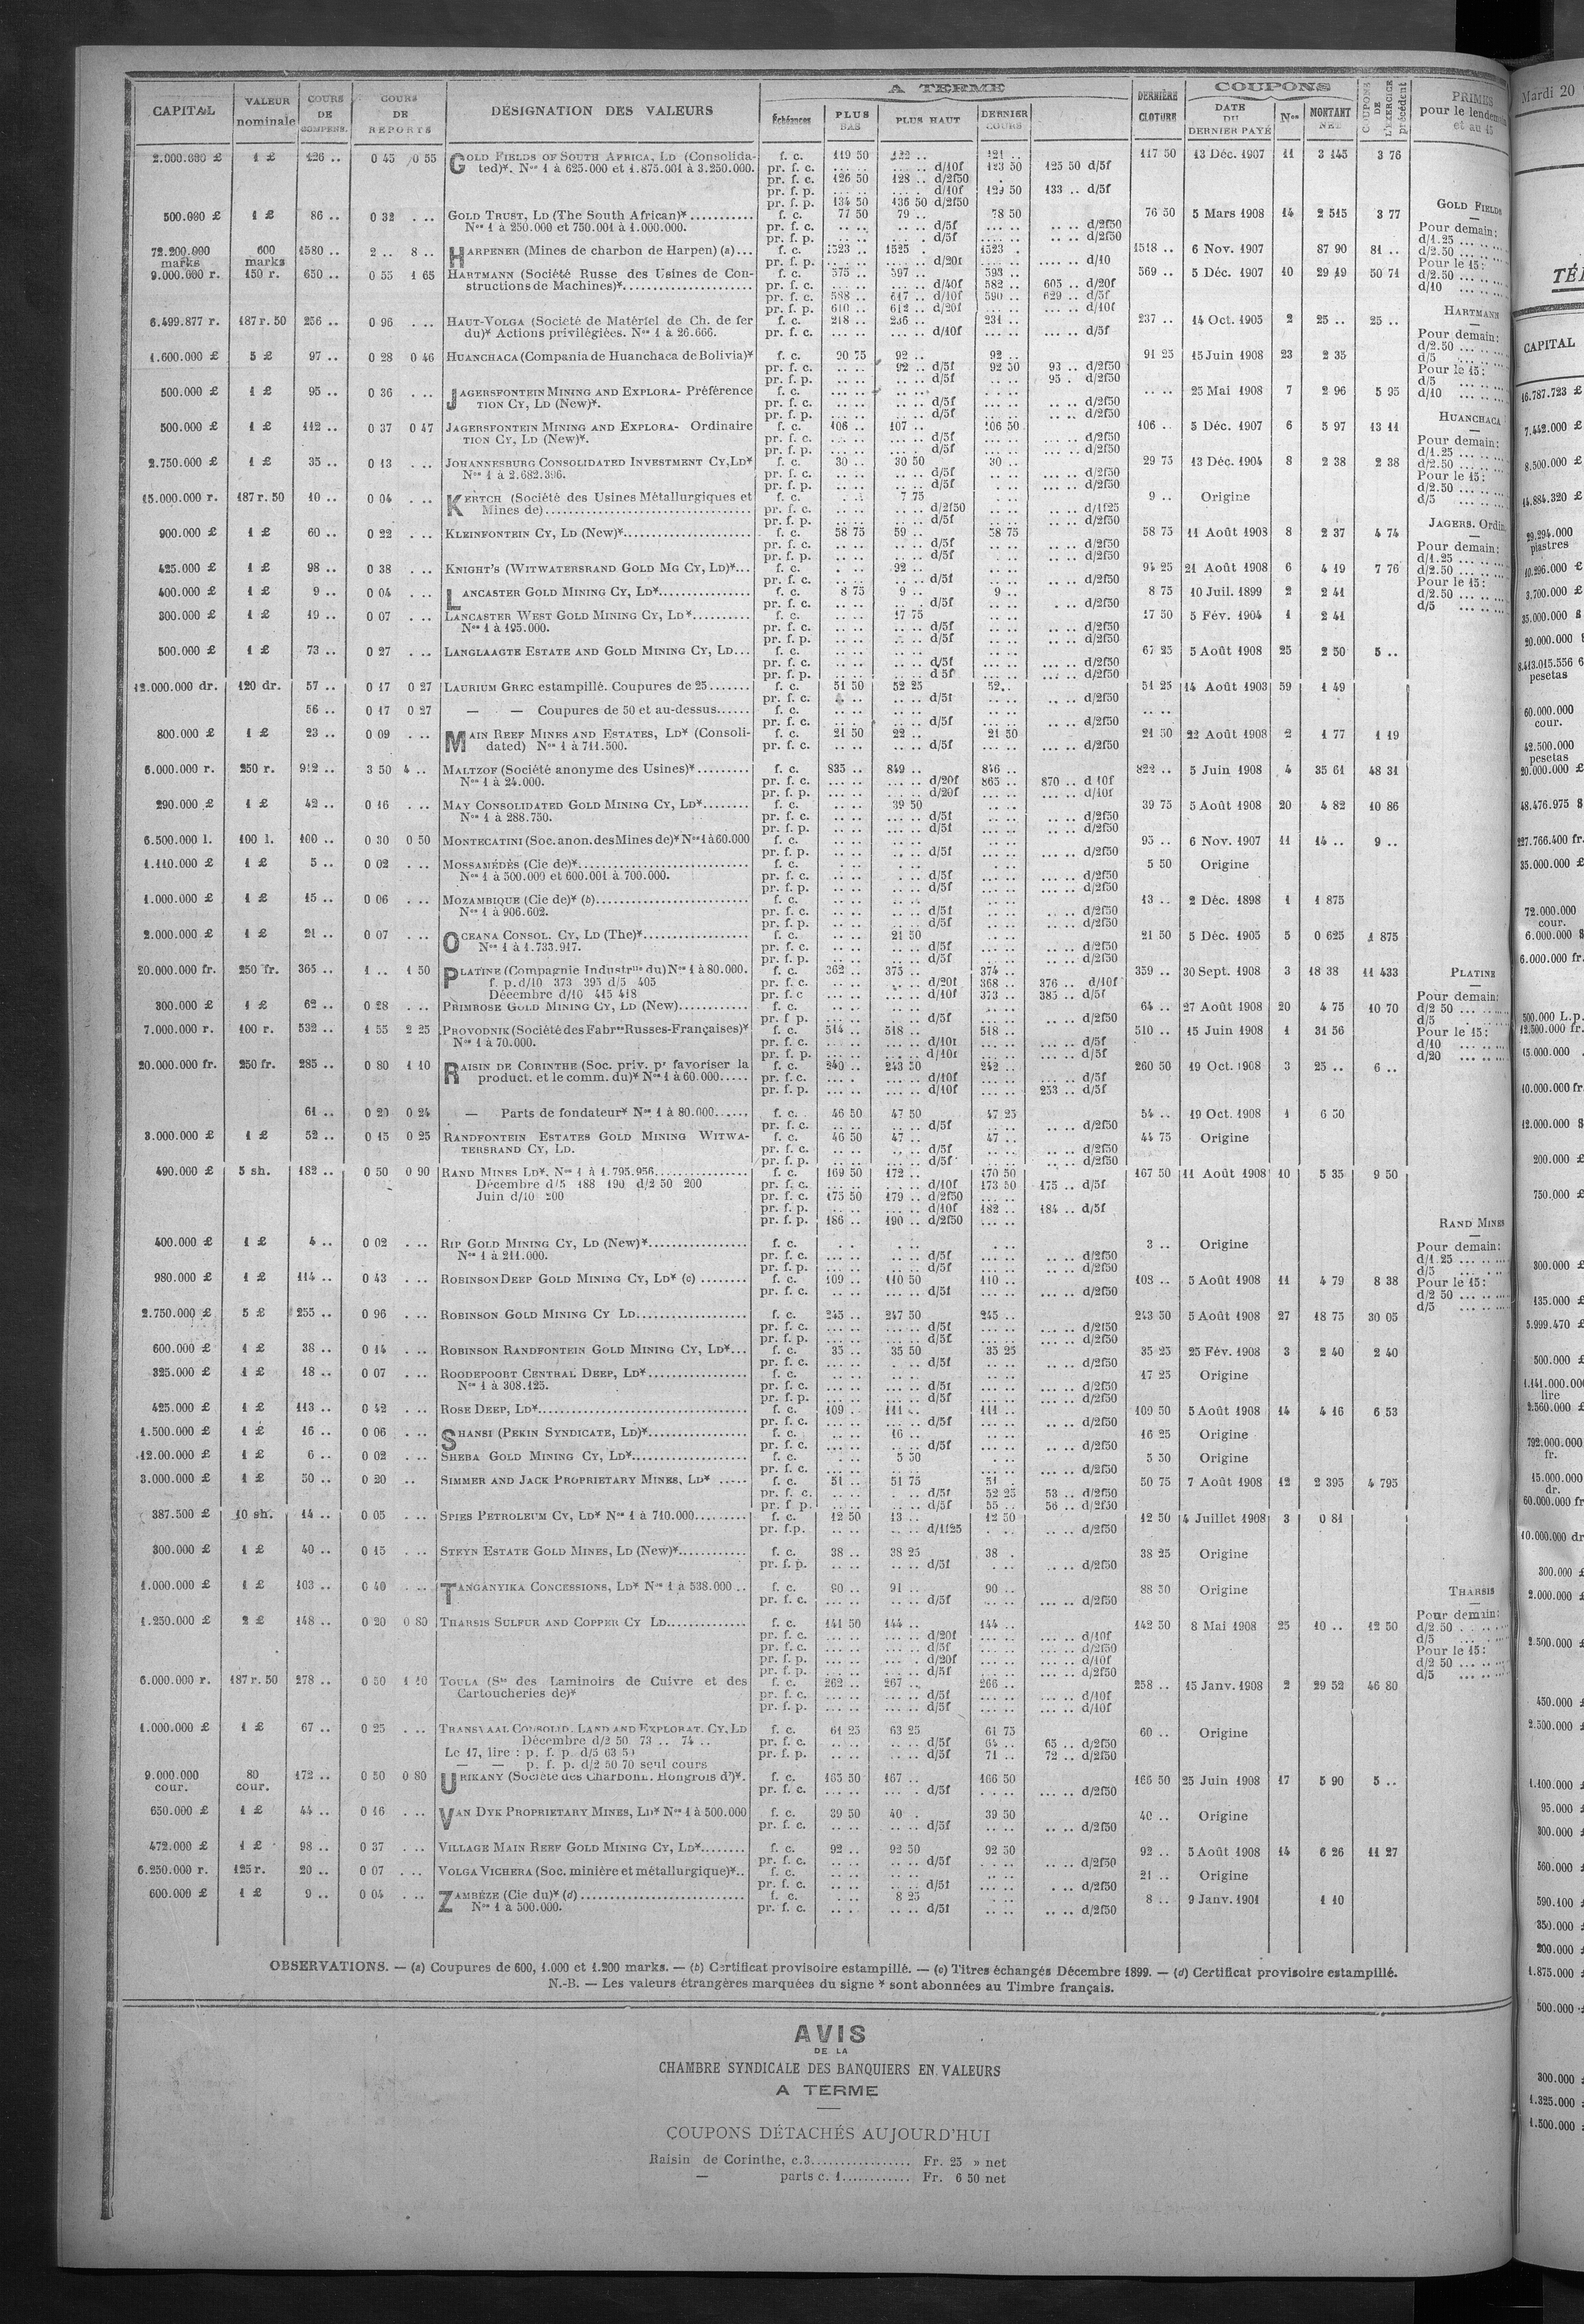 CAPITAL VALEUR nominale COURS DE COMPENS. COURS DE REPORTS DÉSIGNATION DES VALEURS A TERME Échéances PLUS BAS PLUS HAUT DERNIER COURS DERNIÈRE CLOTURE COUPONS DATE DU DERNIER PAYÉ Nos MONTANT NET COUPONS DE L'EXERCICE précédent PRIMES pour le lendemain et au 15
2.000.000 £ 1 £ 126 .. 0 45 0 55 GOLD FIELDS OF SOUTH AFRICA, LD (Consolida- f. c. 119 50 122 .. 121 .. 117 50 13 Déc. 1907 11 3 145 3 76
ted)*. Nos 1 à 625.000 et 1.875.001 à 3.250.000. pr. f. c. d/10f 123 50 125 50 d/5f
pr. f. c. 126 50 128 .. d/2f50
pr. f. p. d/10f 129 50 133 .. d/5f
pr. f. p. 134 50 136 50 d/2f50
500.000 £ 1 £ 86 .. 0 32 GOLD TRUST, LD (The South African)* f. c. 77 50 79 .. 78 50 76 50 5 Mars 1908 14 2 515 3 77
Nos 1 à 250.000 et 750.001 à 1.000.000. pr. f. c. d/5f d/2f50
pr. f. p. d/5f d/2f50
72.200.000 marks 600 marks 1580 .. 2 .. 8 .. HARPENER (Mines de charbon de Harpen) (a)... f. c. 1523 .. 1525 1523 . 1518 .. 6 Nov. 1907 87 90 81 ..
9.000.000 r. 150 r. 650 .. 0 55 1 65 HARTMANN (Société Russe des Usines de Con- f. c. 575 .. 597 .. 593 .. 569 .. 5 Déc. 1907 10 29 19 50 71
structions de Machines)* pr. f. c. d/40f 582 .. 605 .. d/20f
pr. f. c. 588 .. 617 .. d/10f 590 .. 629 .. d/5f
pr. f. p. 610 .. 612 .. d/20f d/10f
6.499.877 r. 187 r. 50 256 .. 0 96 HAUT-VOLGA (Société de Matériel de Ch. de fer f. c. 218 .. 236 .. 231 .. 237 .. 14 Oct. 1905 2 25 .. 25 ..
du)* Actions privilégiées. Nos 1 à 26.666. pr. f. c. d/10f d/5f
1.600.000 £ 5 £ 97 .. 0 28 0 46 HUANCHACA (Compania de Huanchaca de Bolivia)* f. c. 90 75 92 .. 92 .. 91 25 15 Juin 1908 23 2 35
pr. f. c. 92 .. d/5f 92 50 93 .. d/2f50
pr. f. p. d/5f 95 . d/2f50
500.000 £ 1 £ 95 .. 0 36 JAGERSFONTEIN MINING AND EXPLORA- Préférence f. c. 25 Mai 1908 7 2 96 5 95
TION CY, LD (New)*. pr. f. c. d/5f d/2f50
pr. f. p. d/5f d/2f50
500.000 £ 1 £ 112 .. 0 37 0 47 JAGERSFONTEIN MINING AND EXPLORA- Ordinaire f. c. 106 .. 107 .. 106 50 106 .. 5 Déc. 1907 6 5 97 13 11
TION CY, LD (New)*. pr. f. c. d/5f d/2f50
pr. f. p. d/5f d/2f50
2.750.000 £ 1 £ 35 .. 0 13 JOHANNESBURG CONSOLIDATED INVESTMENT CY, LD* f. c. 30 .. 30 50 30 .. 29 75 13 Déc. 1904 8 2 38 2 38
Nos 1 à 2.682.396. pr. f. c. d/5f d/2f50
pr. f. p. d/5f d/2f50
15.000.000 r. 187 r. 50 10 .. 0 04 KERTCH (Société des Usines Métallurgiques et f. c. 7 75 9 .. Origine
Mines de) pr. f. c. d/2f50 d/1f25
pr. f. p. d/5f d/2f50
900.000 £ 1 £ 60 .. 0 22 KLEINFONTEIN CY, LD (New)* f. c. 58 75 59 .. 58 75 58 75 11 Août 1908 8 2 37 4 74
pr. f. c. d/5f d/2f50
pr. f. p. d/5f d/2f50
425.000 £ 1 £ 98 .. 0 38 KNIGHT'S (WITWATERSRAND GOLD MG CY, LD)*... f. c. 92 .. 94 25 21 Août 1908 6 4 19 7 76
pr. f. c. d/5f d/2f50
400.000 £ 1 £ 9 .. 0 04 LANCASTER GOLD MINING CY, LD* f. c. 8 75 9 .. 9 .. 8 75 10 Juil. 1899 2 2 41
pr. f. c. d/5f d/2f50
300.000 £ 1 £ 19 .. 0 07 LANCASTER WEST GOLD MINING CY, LD* f. c. 17 75 17 50 5 Fév. 1904 1 2 41
Nos 1 à 195.000. pr. f. c. d/5f d/2f50
pr. f. p. d/5f d/2f50
500.000 £ 1 £ 73 .. 0 27 LANGLAAGTE ESTATE AND GOLD MINING CY, LD... f. c. 67 25 5 Août 1908 25 2 50 5 ..
pr. f. c. d/5f d/2f50
pr. f. p. d 5f d/2f50
12.000.000 dr. 120 dr. 57 .. 0 17 0 27 LAURIUM GREC estampillé. Coupures de 25 f. c. 51 50 52 25 52.. 51 25 14 Août 1903 59 1 49
pr. f. c. d/5f d/2f50
56 .. 0 17 0 27 — — Coupures de 50 et au-dessus f. c.
pr. f. c. d/5f d/2f50
800.000 £ 1 £ 23 .. 0 09 MAIN REEF MINES AND ESTATES, LD* (Consoli- f. c. 21 50 22 .. 21 50 21 50 22 Août 1908 2 1 77 1 19
dated) Nos 1 à 711.500. pr. f. c. d/5f d/2f50
6.000.000 r. 250 r. 912 .. 3 50 4 .. MALTZOF (Société anonyme des Usines)* f. c. 835 .. 849 .. 846 .. 822 .. 5 Juin 1908 4 35 61 48 31
Nos 1 à 24.000. pr. f. c. d/20f 865 .. 870 .. d 10f
pr. f. p. d/20f d/10f
290.000 £ 1 £ 42 .. 0 16 MAY CONSOLIDATED GOLD MINING CY, LD* f. c. 39 50 39 75 5 Août 1908 20 4 82 10 86
Nos 1 à 288.750. pr. f. c. d/5f d/2f50
pr. f. p. d/5f d/2f50
6.500.000 l. 100 l. 100 .. 0 30 0 50 MONTECATINI (Soc. anon. des Mines de)* Nos 1 à 60.000 f. c. 95 .. 6 Nov. 1907 11 14 .. 9 ..
pr. f. p. d/5f d/2f50
1.110.000 £ 1 £ 5 .. 0 02 MOSSAMÉDÈS (Cie de)* f. c. 5 50 Origine
Nos 1 à 500.000 et 600.001 à 700.000. pr. f. c. d/5f d/2f50
pr. f. p. d/5f d/2f50
1.000.000 £ 1 £ 15 .. 0 06 MOZAMBIQUE (Cie de)* (b) f. c. 13 .. 2 Déc. 1898 1 1 875
Nos 1 à 906.602. pr. f. c. d/5f d/2f50
pr. f. p. d/5f d/2f50
2.000.000 £ 1 £ 21 .. 0 07 OCEANA CONSOL. CY, LD (The)* f. c. 21 50 21 50 5 Déc. 1905 5 0 625 1 875
Nos 1 à 1.733.917. pr. f. c. d/5f d/2f50
pr. f. p. d/5f d/2f50
20.000.000 fr. 250 fr. 365 .. 1 .. 1 50 PLATINE (Compagnie Industrlle du) Nos 1 à 80.000. f. c. 362 .. 375 .. 374 .. 359 .. 30 Sept. 1908 3 18 38 11 433
f. p. d/10 373 395 d/5 405 pr. f. c. d/20f 368 .. 376 .. d/10f
Décembre d/10 415 418 pr. f. c d/10f 373 .. 385 .. d/5f
300.000 £ 1 £ 62 .. 0 28 PRIMROSE GOLD MINING CY, LD (New) f. c. 64 .. 27 Août 1908 20 4 75 10 70
pr. f p. d/5f d/2f50
7.000.000 r. 100 r. 532 .. 1 55 2 25 PROVODNIK (Société des Fabres Russes-Françaises)* f. c. 514 .. 518 .. 518 .. 510 .. 15 Juin 1908 1 31 56
Nos 1 à 70.000. pr. f. c. d/10f d/5f
pr. f. p. d/10f d/5f
20.000.000 fr. 250 fr. 285 .. 0 80 1 10 RAISIN DE CORINTHE (Soc. priv. pr favoriser la f. c. 240 .. 243 50 242 .. 260 50 19 Oct. 1908 3 25 .. 6 ..
product. et le comm. du)* Nos 1 à 60.000 pr. f. c. d/10f d/5f
pr. f. p. d/10f 253 .. d/5f
61 .. 0 20 0 24 — Parts de fondateur* Nos 1 à 80.000 f. c. 46 50 47 50 47 25 54 .. 19 Oct. 1908 1 6 50
pr. f. c. d/5f d/2f50
3.000.000 £ 1 £ 52 .. 0 15 0 25 RANDFONTEIN ESTATES GOLD MINING WITWA- f. c. 46 50 47 .. 47 .. 44 75 Origine
TERSRAND CY, LD. pr. f. c. d/5f d/2f50
pr. f. p. d/5f d/2f50
490.000 £ 5 sh. 182 .. 0 50 0 90 RAND MINES LD*. Nos 1 à 1.795.956 f. c. 169 50 172 .. 170 50 167 50 11 Août 1908 10 5 35 9 50
Décembre d/5 188 190 d/2 50 200 pr. f. c. d/10f 173 50 175 .. d/5f
Juin d/10 200 pr. f. c. 175 50 179 .. d/2f50
pr. f. p. d/10f 182 .. 184 .. d/5f
pr. f. p. 186 .. 190 .. d/2f50
400.000 £ 1 £ 4 .. 0 02 RIP GOLD MINING CY, LD (New)* f. c. 3 .. Origine
Nos 1 à 211.000. pr. f. c. d/5f d/2f50
pr. f. p. d/5f d/2f50
980.000 £ 1 £ 114 .. 0 43 ROBINSON DEEP GOLD MINING CY, LD* (c) f. c. 109 .. 110 50 110 .. 108 .. 5 Août 1908 11 4 79 8 38
pr. f. c. d/5f d/2f50
2.750.000 £ 5 £ 255 .. 0 96 ROBINSON GOLD MINING CY LD f. c. 245 .. 247 50 245 .. 243 50 5 Août 1908 27 18 75 30 05
pr. f. c. d/5f d/2f50
pr. f. p. d/5f d/2f50
600.000 £ 1 £ 38 .. 0 14 ROBINSON RANDFONTEIN GOLD MINING CY, LD*... f. c. 35 .. 35 50 35 25 35 25 25 Fév. 1908 3 2 40 2 40
pr. f. c. d/5f d/2f50
325.000 £ 1 £ 18 .. 0 07 ROODEPOORT CENTRAL DEEP, LD* f. c. 17 25 Origine
Nos 1 à 308.125. pr. f. c. d/5f d/2f50
pr. f. p. d/5f d/2f50
425.000 £ 1 £ 113 .. 0 42 ROSE DEEP, LD* f. c. 109 .. 111 .. 111 .. 109 50 5 Août 1908 14 4 16 6 53
pr. f. c. d/5f d/2f50
1.500.000 £ 1 £ 16 .. 0 06 SHANSI (PEKIN SYNDICATE, LD)* f. c. 16 .. 16 25 Origine
pr. f. c. d/5f d/2f50
.12.00.000 £ 1 £ 6 .. 0 02 SHEBA GOLD MINING CY, LD* f. c. 5 50 5 50 Origine
pr. f. c. d/2f50
3.000.000 £ 1 £ 50 .. 0 20 SIMMER AND JACK PROPRIETARY MINES, LD* f. c. 51 .. 51 75 51 . 50 75 7 Août 1908 12 2 395 4 795
pr. f. c. d/5f 52 25 53 .. d/2f50
pr. f p. d/5f 55 .. 56 .. d/2f50
387.500 £ 10 sh. 14 .. 0 05 SPIES PETROLEUM CY, LD* Nos 1 à 710.000 f. c. 12 50 13 .. 12 50 12 50 4 Juillet 1908 3 0 81
pr. f.p. d/1f25 d/2f50
300.000 £ 1 £ 40 .. 0 15 STEYN ESTATE GOLD MINES, LD (New)* f. c. 38 .. 38 25 38 . 38 25 Origine
pr. f. p. d/5f d/2f50
1.000.000 £ 1 £ 103 .. 0 40 TANGANYIKA CONCESSIONS, LD* Nos 1 à 538.000 .. f. c. 90 .. 91 .. 90 .. 88 50 Origine
pr. f. c. d/5f d/2f50
1.250.000 £ 2 £ 148 .. 0 20 0 80 THARSIS SULFUR AND COPPER CY LD f. c. 141 50 144 .. 144 .. 142 50 8 Mai 1908 25 10 .. 12 50
pr. f. c. d/20f d/10f
pr. f. c. d/5f d/2f50
pr. f. p. d/20f d/10f
pr. f. p. d/5f d/2f50
6.000.000 r. 187 r. 50 278 .. 0 50 1 10 TOULA (Sté des Laminoirs de Cuivre et des f. c. 262 .. 267 .. 266 .. 258 .. 15 Janv. 1908 2 29 52 46 80
Cartoucheries de)* pr. f. c. d/5f d/10f
pr. f. p. d/5f d/10f
1.000.000 £ 1 £ 67 .. 0 25 TRANSVAAL CONSOLID. LAND AND EXPLORAT. CY, LD f. c. 61 25 63 25 61 75 60 .. Origine
Décembre d/2 50 73 .. 74 .. pr. f. c. d/5f 64 .. 65 .. d/2f50
Le 17, lire : p. f. p. d/5 63 50 pr. f. p. d/5f 71 .. 72 .. d/2f50
— — p. f. p. d/2 50 70 seul cours
9.000.000 cour. 80 cour. 172 .. 0 50 0 80 URIKANY (Société des Charbonn. Hongrois d')*. f. c. 165 50 167 .. 166 50 166 50 25 Juin 1908 17 5 90 5 ..
pr. f. c. d/5f d/2f50
650.000 £ 1 £ 44 .. 0 16 VAN DYK PROPRIETARY MINES, LD* Nos 1 à 500.000 f. c. 39 50 40 . 39 50 40 .. Origine
pr. f. c. d/5f d/2f50
472.000 £ 1 £ 98 .. 0 37 VILLAGE MAIN REEF GOLD MINING CY, LD* f. c. 92 .. 92 50 92 50 92 .. 5 Août 1908 14 6 26 11 27
pr. f. c. d/5f d/2f50
6.250.000 r. 125 r. 20 .. 0 07 VOLGA VICHERA (Soc. minière et métallurgique)*.. f. c. 21 .. Origine
pr. f. c. d/5f d/2f50
600.000 £ 1 £ 9 .. 0 04 ZAMBÈZE (Cie du)* (d) f. c. 8 25 8 .. 9 Janv. 1901 1 10
Nos 1 à 500.000. pr. f. c. d/5f d/2f50
GOLD FIELDS
Pour demain:
d/1.25
d/2.50
Pour le 15:
d/2.50
d/10
HARTMANN
Pour demain:
d/2.50
d/5
Pour le 15:
d/5
d/10
HUANCHACA
Pour demain:
d/1.25
d/2.50
Pour le 15:
d/2.50
d/5
JAGERS. Ordin.
Pour demain:
d/1.25
d/2.50
Pour le 15:
d/2.50
d/5
PLATINE
Pour demain:
d/2 50
d/5
Pour le 15:
d/10
d/20
RAND MINES
Pour demain:
d/1.25
d/5
Pour le 15:
d/2 50
d/5
THARSIS
Pour demain:
d/2.50
d/5
Pour le 15:
d/2 50
d/5
OBSERVATIONS. — (a) Coupures de 600, 1.000 et 1.200 marks. — (b) Certificat provisoire estampillé. — (c) Titres échangés Décembre 1899. — (d) Certificat provisoire estampillé.
N.-B. — Les valeurs étrangères marquées du signe * sont abonnées au Timbre français.
AVIS
DE LA
CHAMBRE SYNDICALE DES BANQUIERS EN VALEURS
A TERME
COUPONS DÉTACHÉS AUJOURD'HUI
Raisin de Corinthe, c. 3 Fr. 25 » net
— parts c. 1 Fr. 6 50 net
Mardi 20
CAPITAL
16.787.723 £
7.442.000 £
8.500.000 £
14.884.320 £
29.294.000
piastres
10.296.000 £
3.700.000 £
35.000.000 $
20.000.000
8.413.015.556
pesetas
60.000.000
cour.
42.500.000
pesetas
20.000.000 £
48.476.975 $
227.766.400 fr.
35.000.000 £
72.000.000
cour.
6.000.000 $
6.000.000 fr.
500.000 L.p.
12.500.000 fr.
15.000.000
10.000.000 fr.
12.000.000 $
200.000 £
750.000 £
300.000 £
135.000 £
5.999.470 £
500.000 £
1.141.000.000
lire
2.560.000 £
792.000.000
fr.
15.000.000
dr.
60.000.000 fr
10.000.000 dr
300.000 £
2.000.000 £
2.500.000 £
450.000 £
2.500.000 £
1.100.000 £
95.000 £
300.000 £
560.000 £
590.100 £
350.000 £
200.000 £
1.875.000 £
500.000
300.000 £
1.325.000 £
1.500.000 £